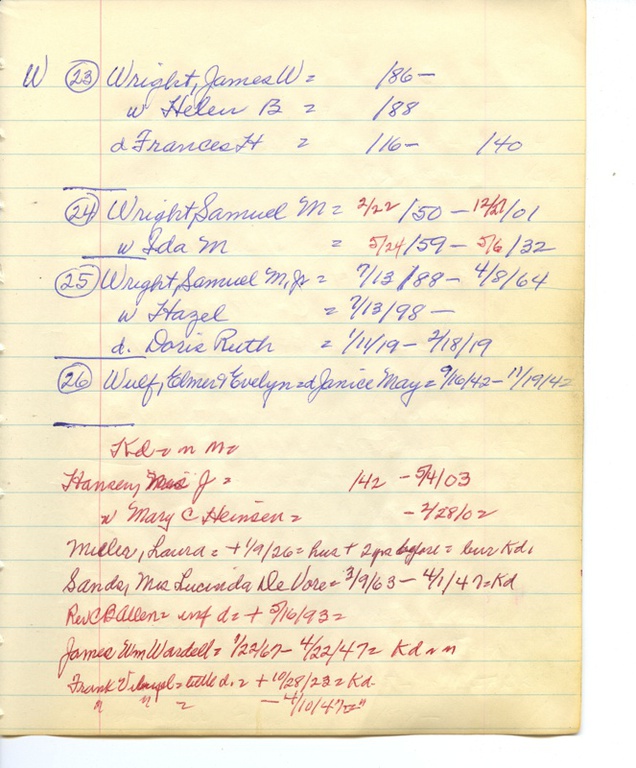 W (23) Wright, James W = /86 –
w Helen B = /88
d Frances H = /16 – /40
(24) Wright, Samuel M = 2/22/50 – 12/21/01
w Ida M = 5/24/59 – 5/6/32
(25) Wright, Samuel M, Jr = 7/13/88 – 4/8/64
w Hazel = 7/13/98 –
d. Doris Ruth = 1/11/19 – 2/18/19
(26) Wulf, Elmer & Evelyn = d Janice May = 9/16/42 – 11/19/42
Kd = n m =
Hansen, J = /42 – 5/4/03
w Mary C Heinsen = – 2/28/02
Miller, Laura = + 1/9/26 = hus + 2 yrs before = bur Kd.
Sands, Mrs Lucinda De Vore = 3/9/63 – 4/1/47 = Kd
Rev C B Allen = inf d = + 5/16/93 =
James Wm Wardell = 1/22/67 – 4/22/47 = Kd = n
Frank = little d. = + 10/28/23 = Kd
" " = – 4/10/47 = "